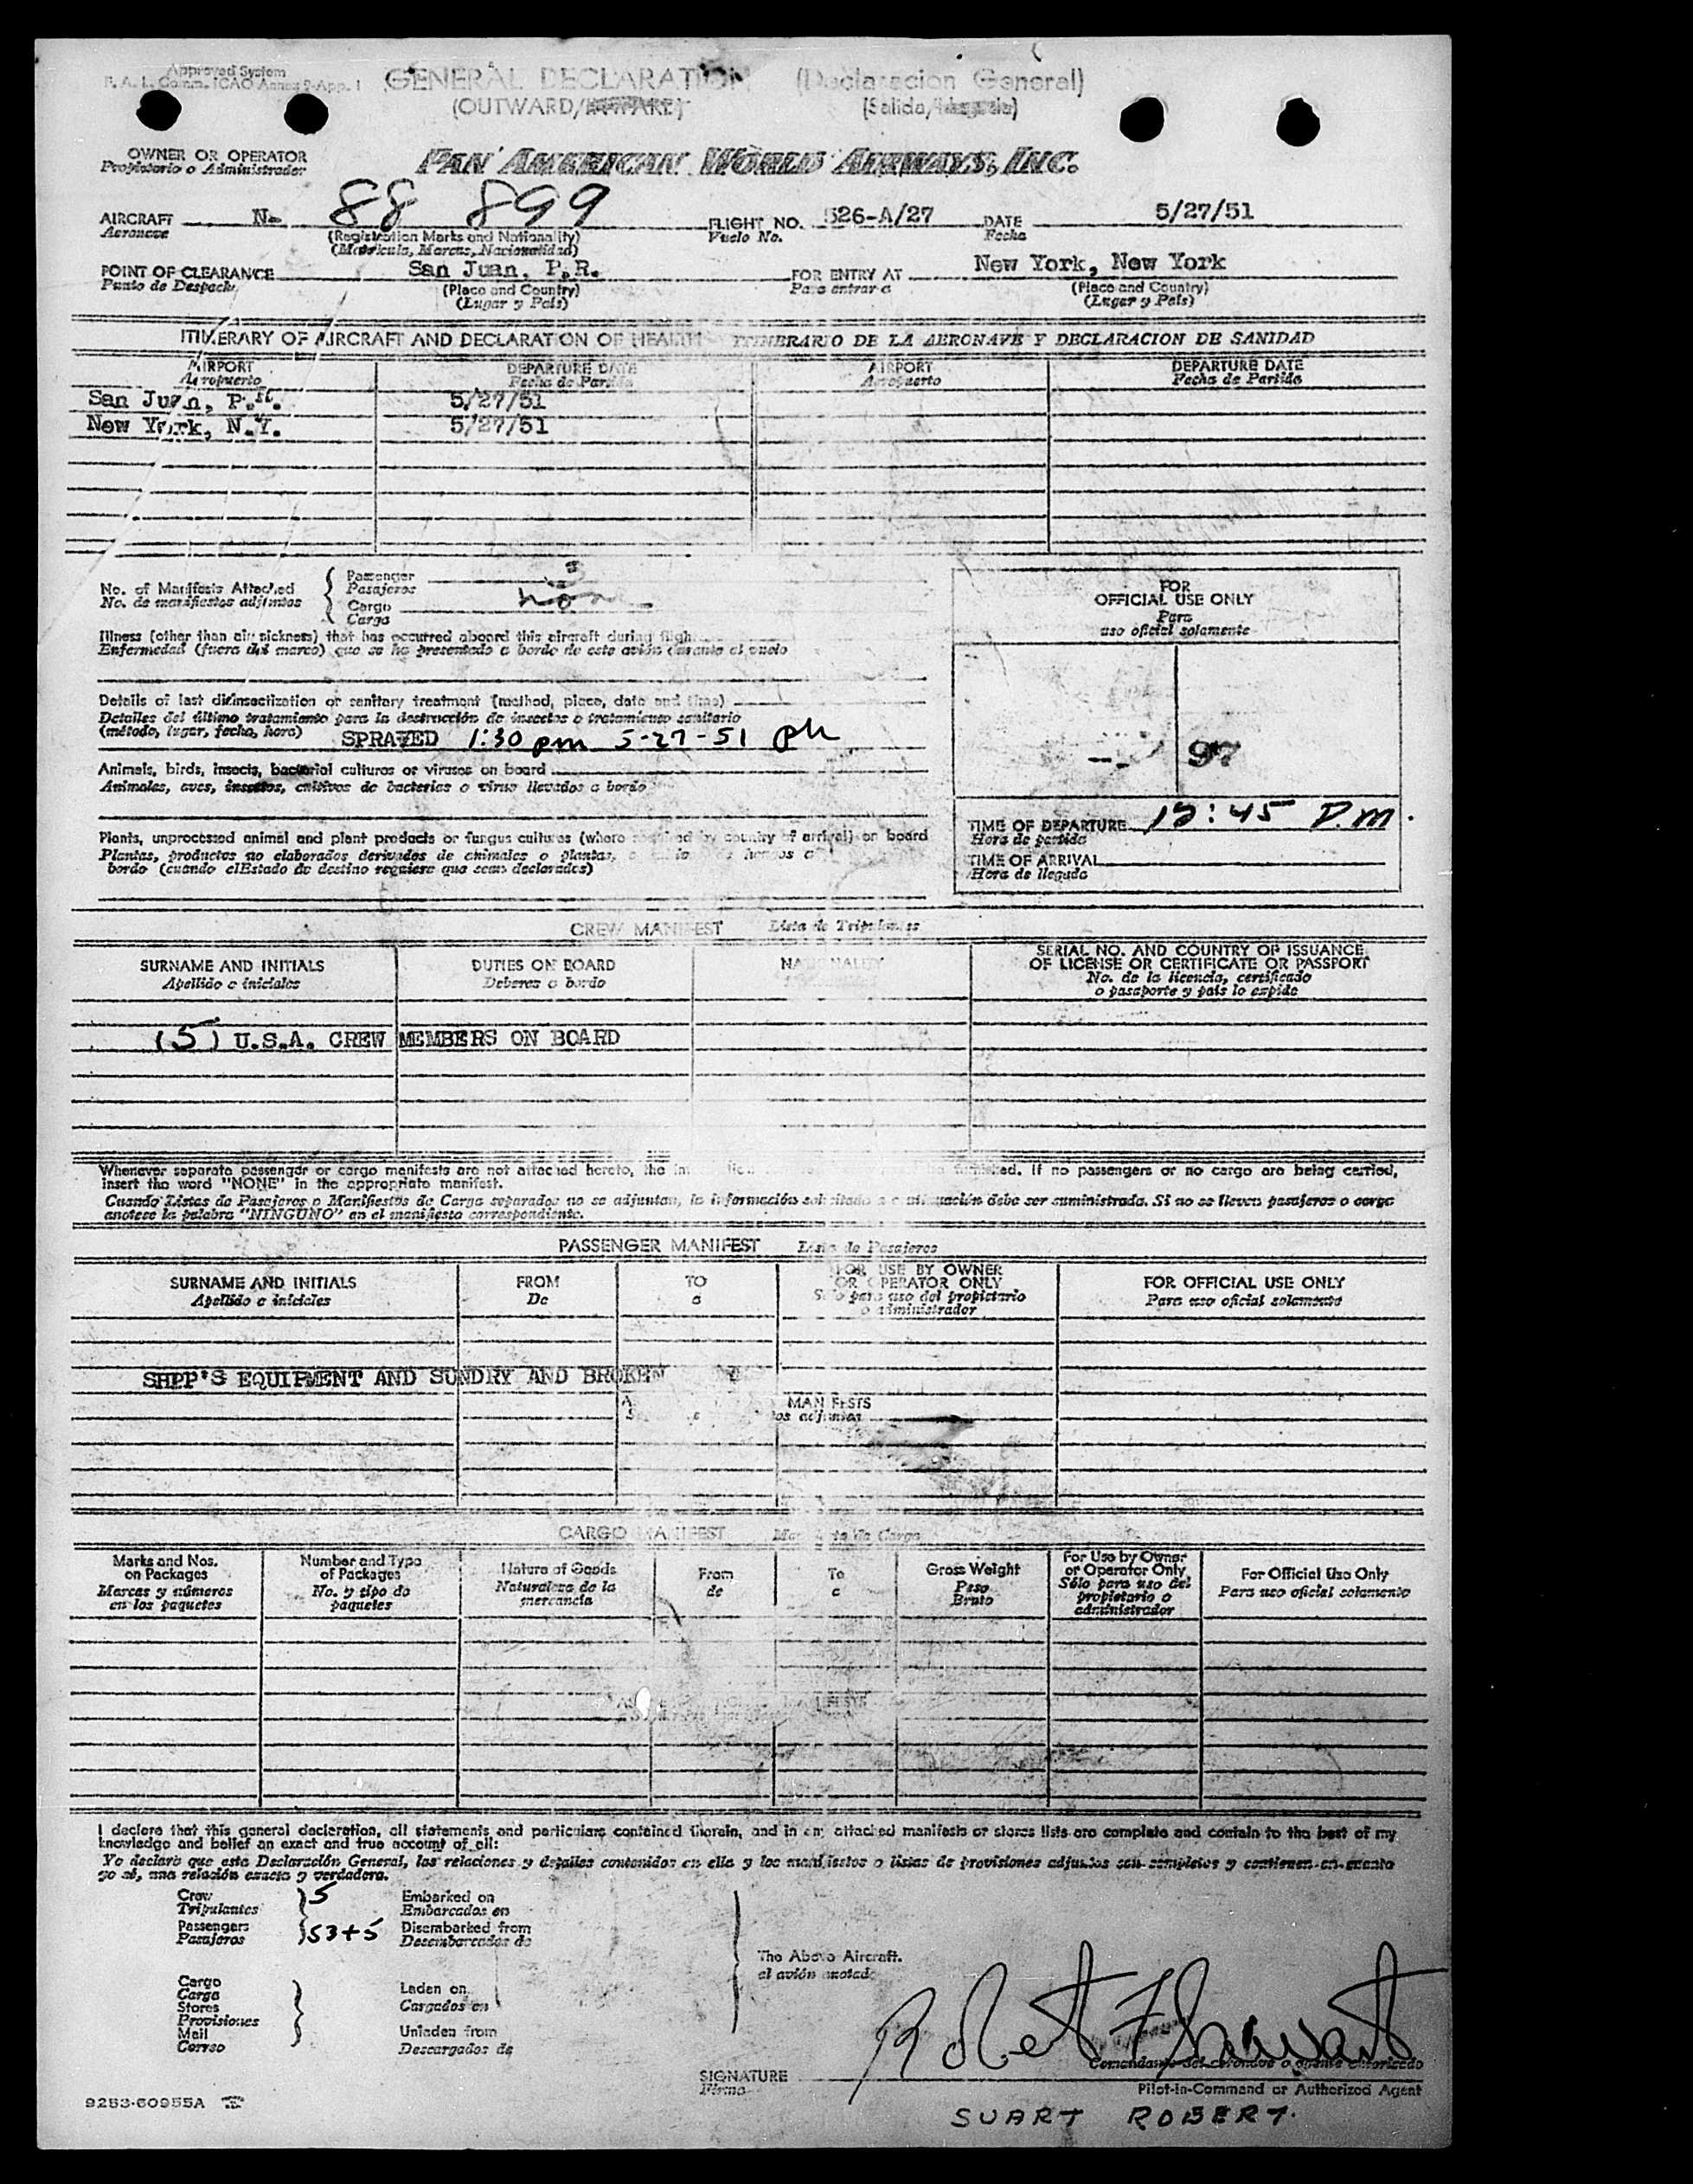 Approved System
F. A. L. Comm. ICAO Annex 9-App. 1
GENERAL DECLARATION (Declaracion General)
(OUTWARD/
(Salida/
OWNER OR OPERATOR
Propietario o Administrador
PAN AMERICAN WORLD AIRWAYS, INC.
AIRCRAFT N- 88 899 FLIGHT NO. 526-A/27 DATE 5/27/51
Aeronave (Registration Marks and Nationality) Vuelo No. Fecha
(Matricula, Marcas, Nacionalidad)
POINT OF CLEARANCE San Juan, P.R. FOR ENTRY AT New York, New York
Punto de Despacho (Place and Country) Para entrar a (Place and Country)
(Lugar y País) (Lugar y País)
ITINERARY OF AIRCRAFT AND DECLARATION OF HEALTH ITINERARIO DE LA AERONAVE Y DECLARACION DE SANIDAD
AIRPORT DEPARTURE DATE AIRPORT DEPARTURE DATE
Aeropuerto Fecha de Partida Aeropuerto Fecha de Partida
San Juan, P.R. 5/27/51
New York, N.Y. 5/27/51
No. of Manifests Attached
No. de manifiestos adjuntos
Passenger 3
Pasajeros
Cargo none
Carga
Illness (other than air sickness) that has occurred aboard this aircraft during fligh
Enfermedad (fuera del mareo) que se ha presentado a bordo de este avión durante el vuelo
Details of last disinsectization or sanitary treatment (method, place, date and time)
Detalles del último tratamiento para la destrucción de insectos o tratamiento sanitario
(método, lugar, fecha, hora) SPRAYED 1:30 pm 5-27-51 ph
Animals, birds, insects, bacterial cultures or viruses on board
Animales, aves, insectos, cultivos de bacterias o virus llevados a bordo
Plants, unprocessed animal and plant products or fungus cultures (where required by country of arrival) on board
Plantas, productos no elaborados derivados de animales o plantas, o hongos a
bordo (cuando el Estado de destino requiera que sean declarados)
FOR
OFFICIAL USE ONLY
Para
uso oficial solamente
97
TIME OF DEPARTURE 12:45 P.M.
Hora de partida
TIME OF ARRIVAL
Hora de llegada
CREW MANIFEST Lista de Tripulantes
SURNAME AND INITIALS DUTIES ON BOARD NATIONALITY SERIAL NO. AND COUNTRY OF ISSUANCE
OF LICENSE OR CERTIFICATE OR PASSPORT
Apellido e iniciales Deberes a bordo No. de la licencia, certificado
o pasaporte y país lo expide
(5) U.S.A. CREW MEMBERS ON BOARD
Whenever separate passenger or cargo manifests are not attached hereto, the furnished. If no passengers or no cargo are being carried,
insert the word "NONE" in the appropriate manifest.
Cuando Listas de Pasajeros o Manifiestos de Carga separados no se adjuntan, la información solicitada a continuación debe ser suministrada. Si no se llevan pasajeros o carga
anotese la palabra "NINGUNO" en el manifiesto correspondiente.
PASSENGER MANIFEST Lista de Pasajeros
SURNAME AND INITIALS FROM TO FOR USE BY OWNER
OR OPERATOR ONLY FOR OFFICIAL USE ONLY
Apellido e iniciales De a Solo para uso del propietario
o administrador Para uso oficial solamente
SHPP'S EQUIPMENT AND SUNDRY AND BROKEN
MANIFESTS
los adjuntas
CARGO MANIFEST Manifiesto de Carga
Marks and Nos.
on Packages
Marcas y números
en los paquetes
Number and Type
of Packages
No. y tipo de
paquetes
Nature of Goods
Naturaleza de la
mercancia
From
de
To
a
Gross Weight
Peso
Bruto
For Use by Owner
or Operator Only
Sólo para uso del
propietario o
administrador
For Official Use Only
Para uso oficial solamente
I declare that this general declaration, all statements and particulars contained therein, and in any attached manifests or stores lists are complete and contain to the best of my
knowledge and belief an exact and true account of all:
Yo declaro que esta Declaración General, las relaciones y detalles contenidos en ella y los manifiestos o listas de provisiones adjuntos son completos y contienen en cuanto
yo sé, una relación exacta y verdadera.
Crew 5 Embarked on
Tripulantes Embarcados en
Passengers 53+5 Disembarked from
Pasajeros Desembarcados de
The Above Aircraft.
el avión anotado
Cargo
Carga
Stores
Provisiones
Mail
Correo
Laden on
Cargados en
Unladen from
Descargados de
SIGNATURE
Firma
Comandante del aeronave o agente autorizado
Pilot-in-Command or Authorized Agent
9253-60955A
SUART ROBERT.